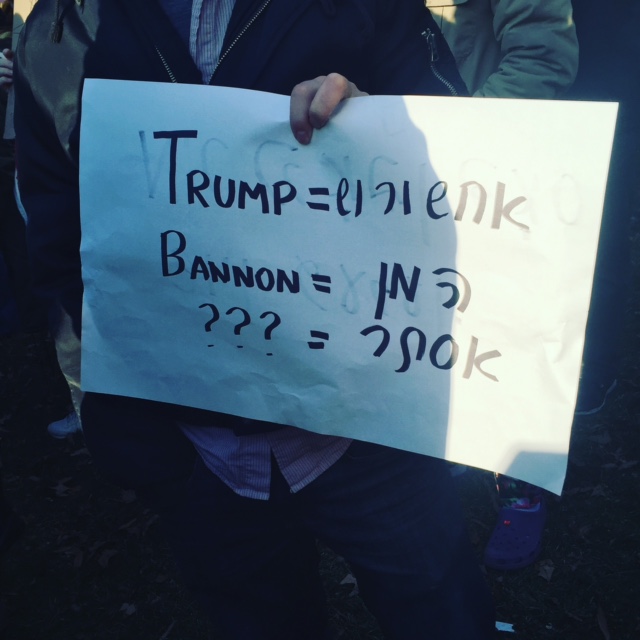 TRUMP = אחשרוש
BANNON = המן
??? = אסתר